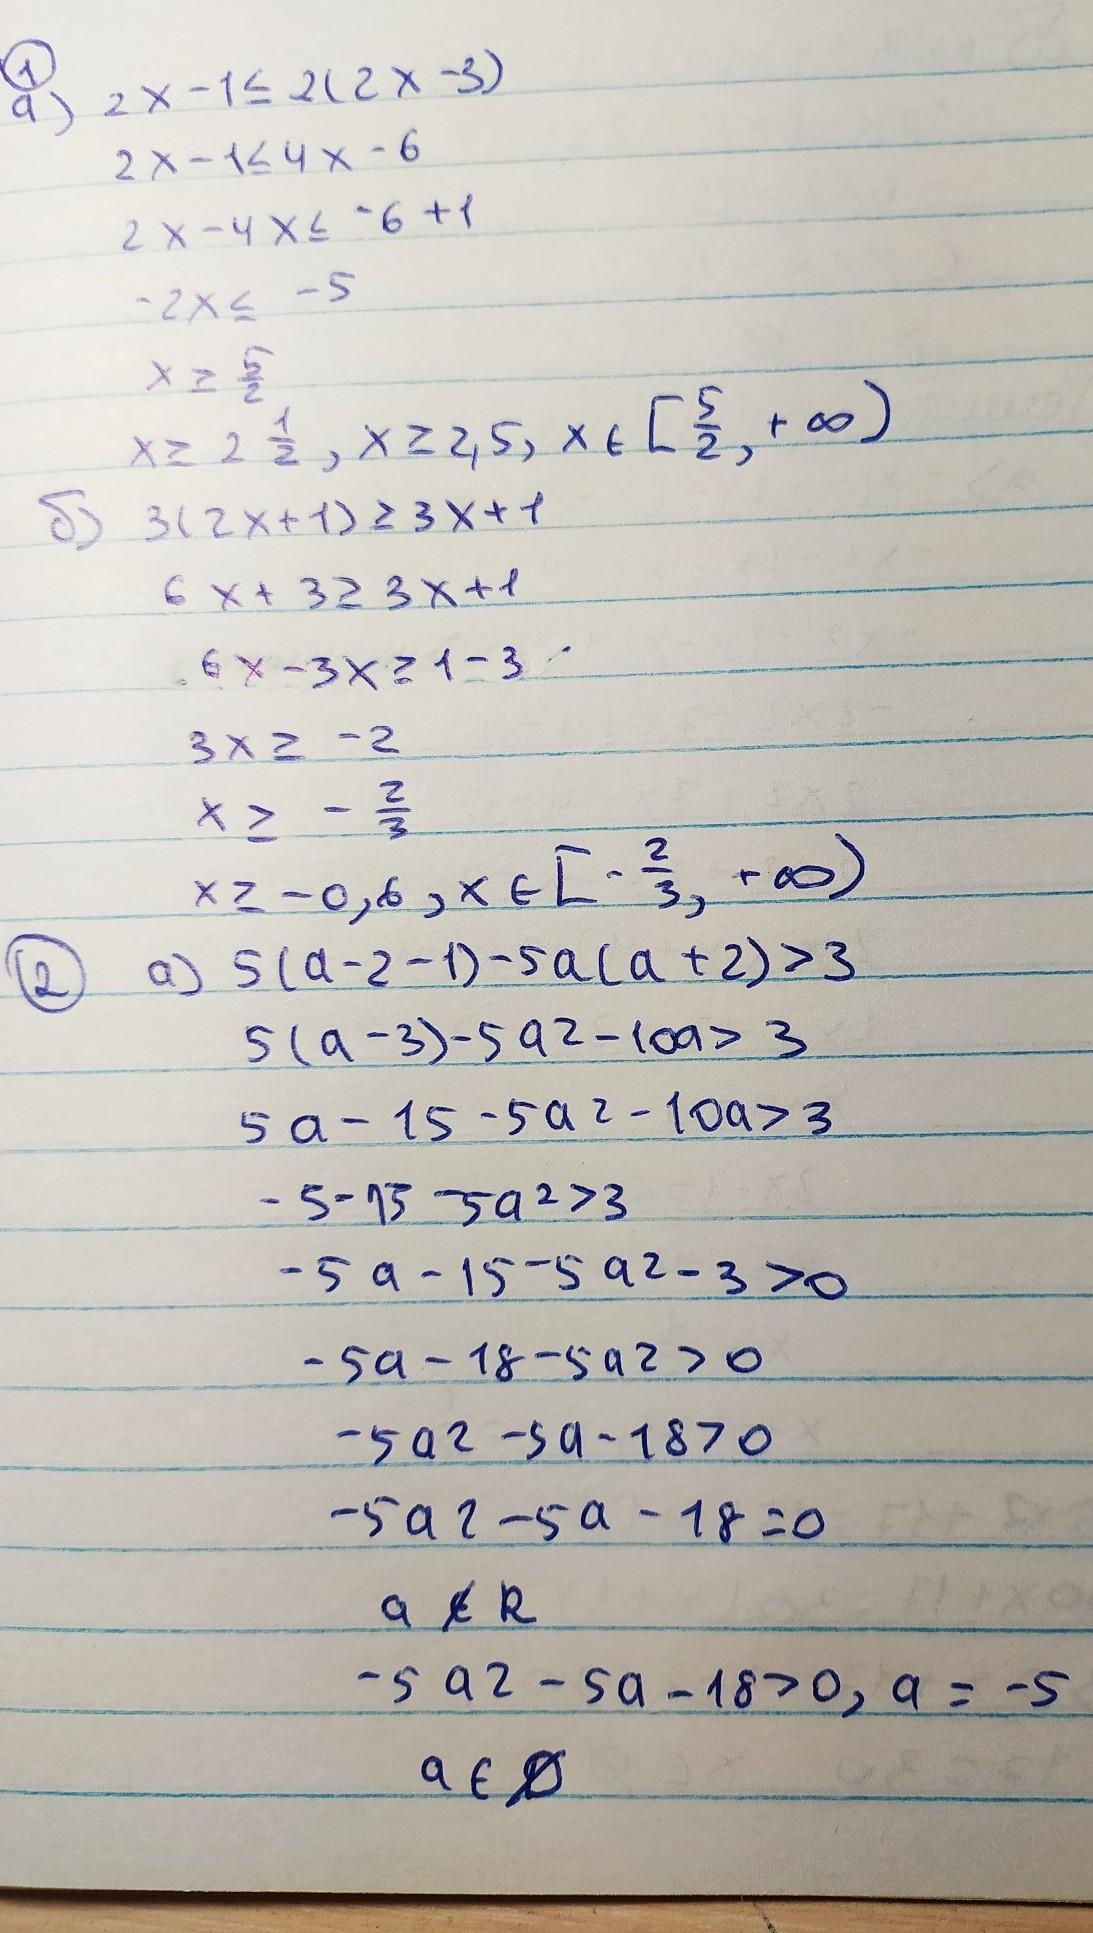 ①
а) 2x-1≤2(2x-3)
2x-1≤4x-6
2x-4x≤-6+1
-2x≤ -5
x≥ 5/2
x≥ 2 1/2, x≥2,5, x∈[5/2, +∞)
б) 3(2x+1)≥3x+1
6x+3≥3x+1
6x-3x≥1-3
3x≥ -2
x≥ - 2/3
x≥ -0,6, x∈[-2/3, +∞)
② а) 5(a-2-1)-5a(a+2)>3
5(a-3)-5a2-10a>3
5a-15-5a2-10a>3
-5-15-5a2>3
-5a-15-5a2-3>0
-5a-18-5a2>0
-5a2-5a-18>0
-5a2-5a-18=0
a∉R
-5a2-5a-18>0, a=-5
a∈Ø